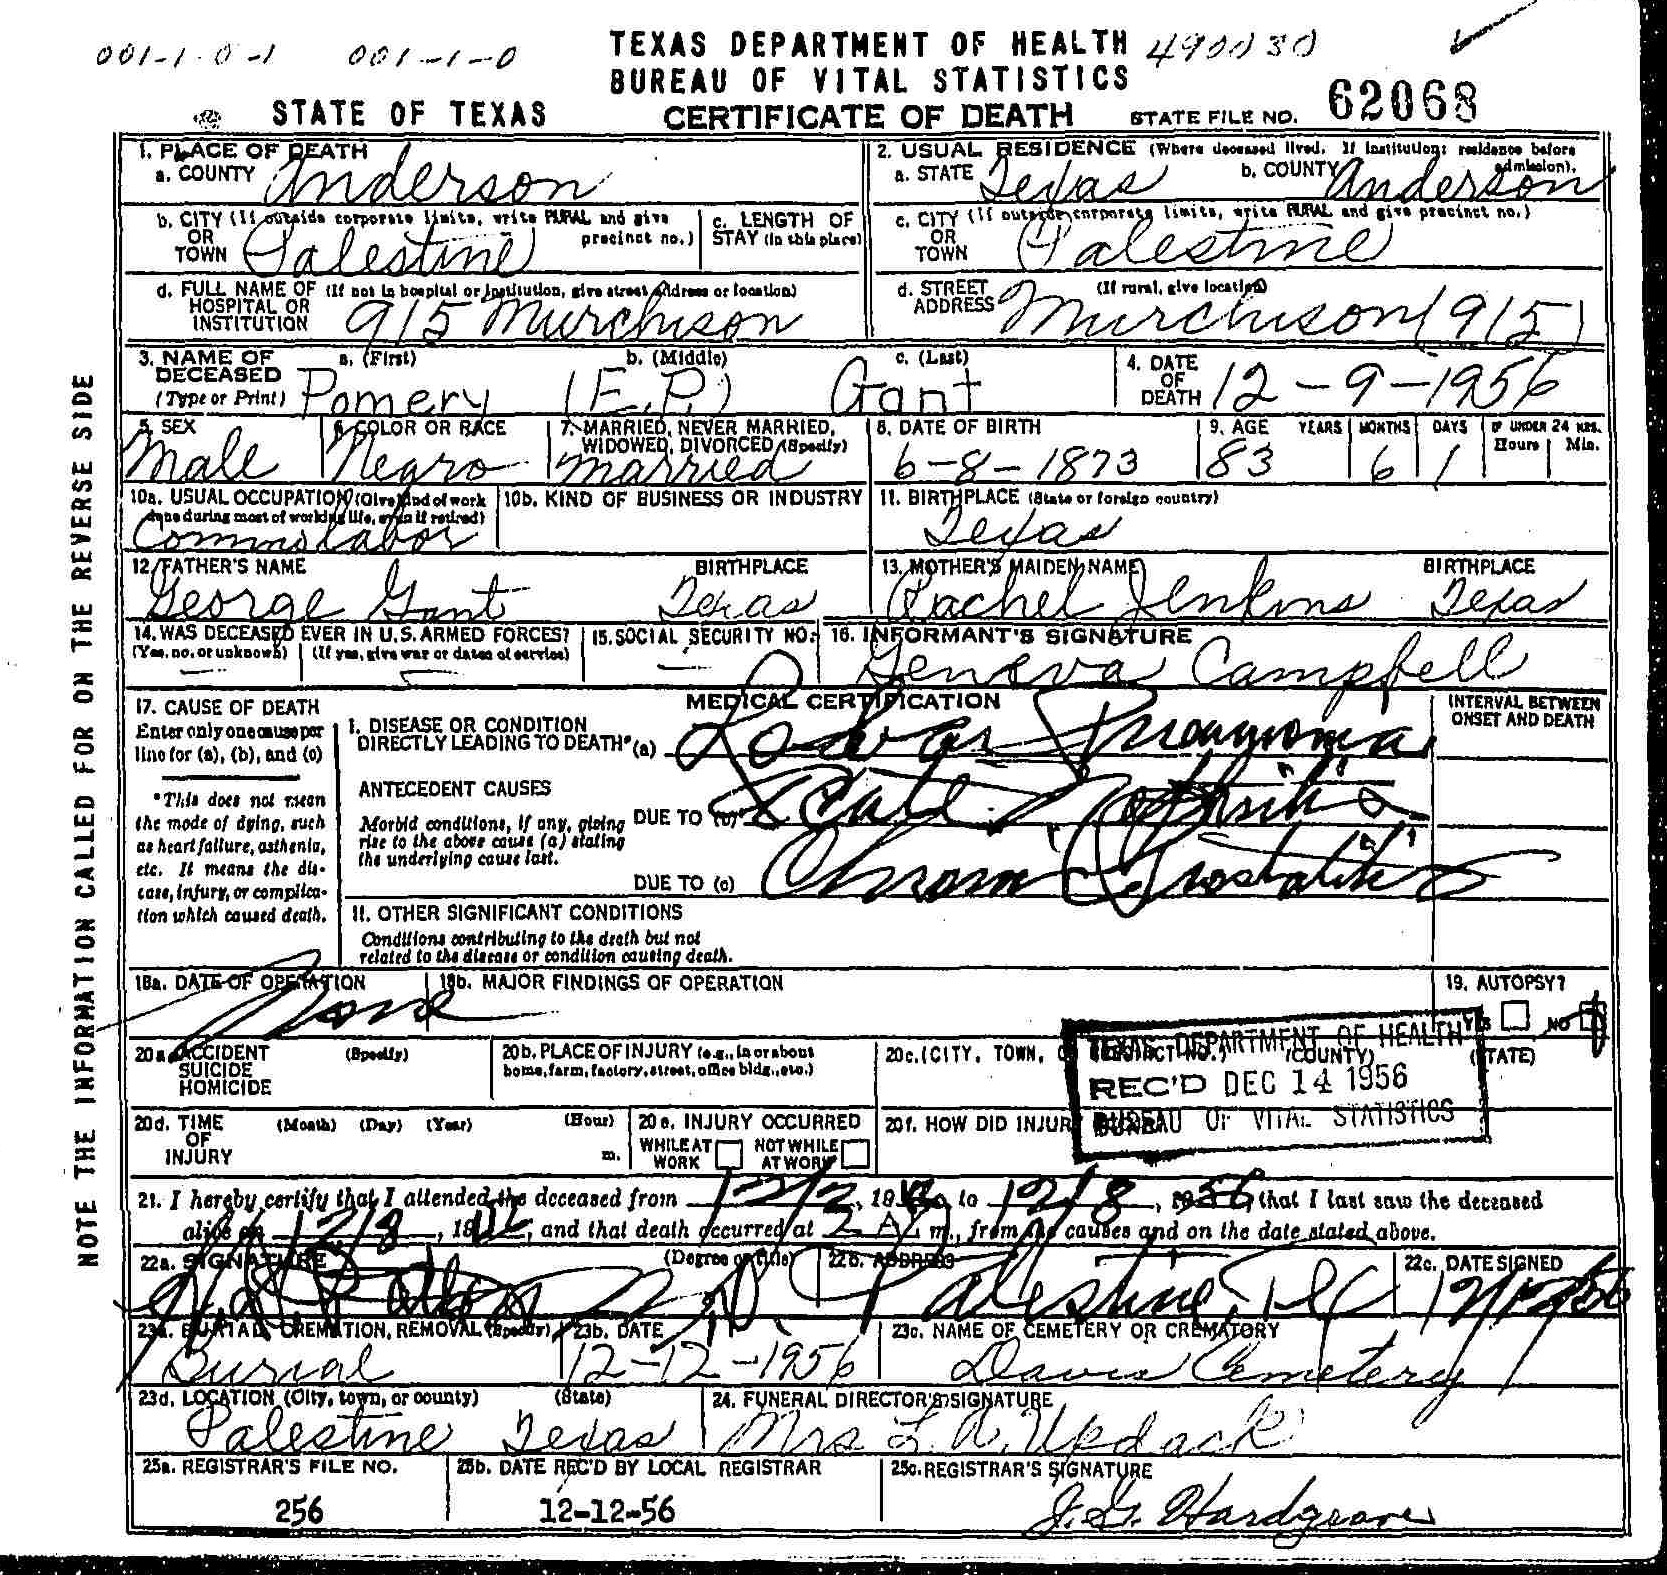 001-1-0-1 001-1-0 TEXAS DEPARTMENT OF HEALTH 490030
BUREAU OF VITAL STATISTICS
STATE OF TEXAS CERTIFICATE OF DEATH STATE FILE NO. 62068
NOTE THE INFORMATION CALLED FOR ON THE REVERSE SIDE
1. PLACE OF DEATH
a. COUNTY Anderson
2. USUAL RESIDENCE (Where deceased lived. If institution: residence before admission).
a. STATE Texas b. COUNTY Anderson
b. CITY (If outside corporate limits, write RURAL and give precinct no.)
OR TOWN Palestine
c. LENGTH OF STAY (in this place)
c. CITY (If outside corporate limits, write RURAL and give precinct no.)
OR TOWN Palestine
d. FULL NAME OF (If not in hospital or institution, give street address or location)
HOSPITAL OR INSTITUTION 915 Murchison
d. STREET ADDRESS (If rural, give location)
Murchison (915)
3. NAME OF DECEASED (Type or Print)
a. (First) b. (Middle) c. (Last)
Pomery (E.P.) Gant
4. DATE OF DEATH 12-9-1956
5. SEX Male
6. COLOR OR RACE Negro
7. MARRIED, NEVER MARRIED, WIDOWED, DIVORCED (Specify) married
8. DATE OF BIRTH 6-8-1873
9. AGE YEARS MONTHS DAYS IF UNDER 24 HRS. Hours Min.
83 6 1
10a. USUAL OCCUPATION (Give kind of work done during most of working life, even if retired)
10b. KIND OF BUSINESS OR INDUSTRY
11. BIRTHPLACE (State or foreign country)
Texas
12. FATHER'S NAME BIRTHPLACE
George Gant Texas
13. MOTHER'S MAIDEN NAME BIRTHPLACE
Rachel Jenkins Texas
14. WAS DECEASED EVER IN U.S. ARMED FORCES?
(Yes, no, or unknown) (If yes, give war or dates of service)
15. SOCIAL SECURITY NO.
16. INFORMANT'S SIGNATURE
Geneva Campbell
MEDICAL CERTIFICATION
INTERVAL BETWEEN ONSET AND DEATH
17. CAUSE OF DEATH
Enter only one cause per line for (a), (b), and (c)
*This does not mean the mode of dying, such as heart failure, asthenia, etc. It means the disease, injury, or complication which caused death.
I. DISEASE OR CONDITION
DIRECTLY LEADING TO DEATH* (a) Lobar Pneumonia
ANTECEDENT CAUSES
Morbid conditions, if any, giving rise to the above cause (a) stating the underlying cause last.
DUE TO (b) Nephritis
DUE TO (c) Chronic Prostatitis
II. OTHER SIGNIFICANT CONDITIONS
Conditions contributing to the death but not related to the disease or condition causing death.
18a. DATE OF OPERATION
None
18b. MAJOR FINDINGS OF OPERATION
19. AUTOPSY?
YES NO
20a. ACCIDENT SUICIDE HOMICIDE (Specify)
20b. PLACE OF INJURY (e.g., in or about home, farm, factory, street, office bldg., etc.)
20c. (CITY, TOWN, OR PRECINCT NO.) (COUNTY) (STATE)
TEXAS DEPARTMENT OF HEALTH
REC'D DEC 14 1956
BUREAU OF VITAL STATISTICS
20d. TIME OF INJURY (Month) (Day) (Year) (Hour) m.
20e. INJURY OCCURRED
WHILE AT WORK NOT WHILE AT WORK
20f. HOW DID INJURY
21. I hereby certify that I attended the deceased from 12/2, 19 to 12/8, 1956, that I last saw the deceased
alive on 12/8, 19, and that death occurred at 2 A m., from the causes and on the date stated above.
22a. SIGNATURE (Degree or title) 22b. ADDRESS 22c. DATE SIGNED
M.D. Palestine, Tex
23a. BURIAL, CREMATION, REMOVAL (Specify) 23b. DATE 23c. NAME OF CEMETERY OR CREMATORY
Burial 12-12-1956 Davis Cemetery
23d. LOCATION (City, town, or county) (State) 24. FUNERAL DIRECTOR'S SIGNATURE
Palestine Texas Mrs L. A. Updack
25a. REGISTRAR'S FILE NO. 25b. DATE REC'D BY LOCAL REGISTRAR 25c. REGISTRAR'S SIGNATURE
256 12-12-56 J. G. Hardgrave